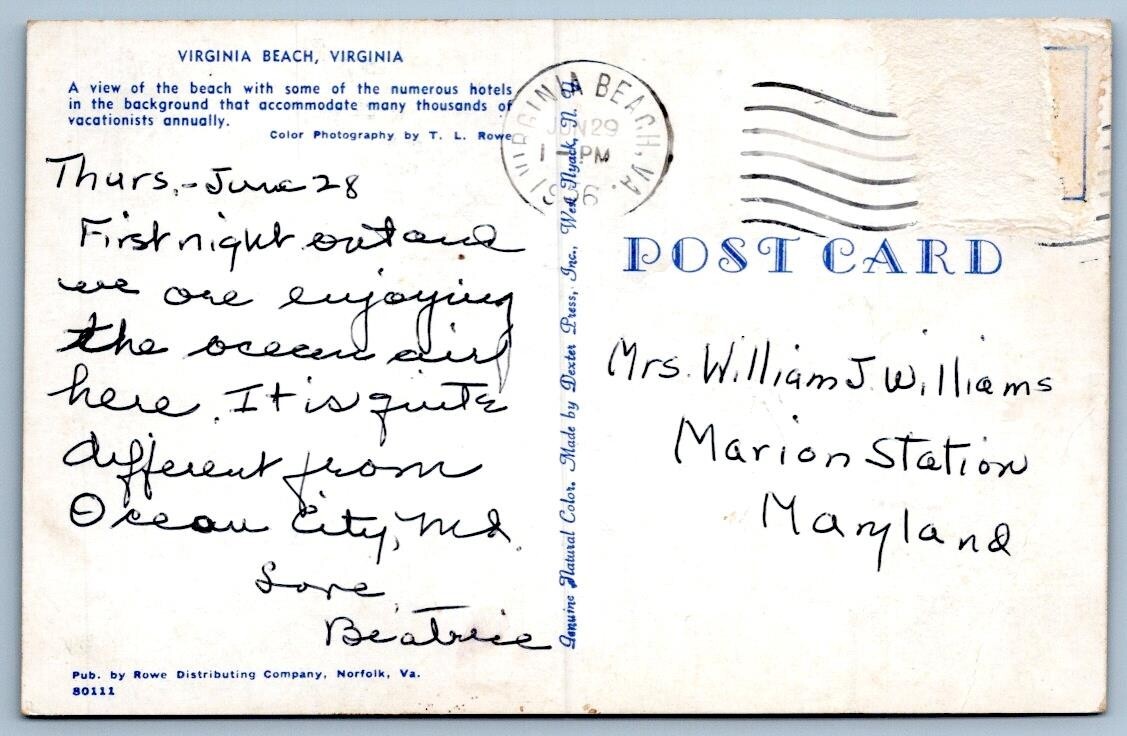 VIRGINIA BEACH, VIRGINIA
A view of the beach with some of the numerous hotels
in the background that accommodate many thousands of
vacationists annually.
Color Photography by T. L. Rowe
Thurs,-June 28
First night out and
we are enjoying
the ocean air
here. It is quite
different from
Ocean City, Md.
Love
Beatrice
Pub. by Rowe Distributing Company, Norfolk, Va.
80111
Genuine Natural Color. Made by Dexter Press, Inc., West Nyack, N. Y.
VIRGINIA BEACH, VA.
JUN 29
1 - PM
POST CARD
Mrs. William J. Williams
Marion Station
Maryland